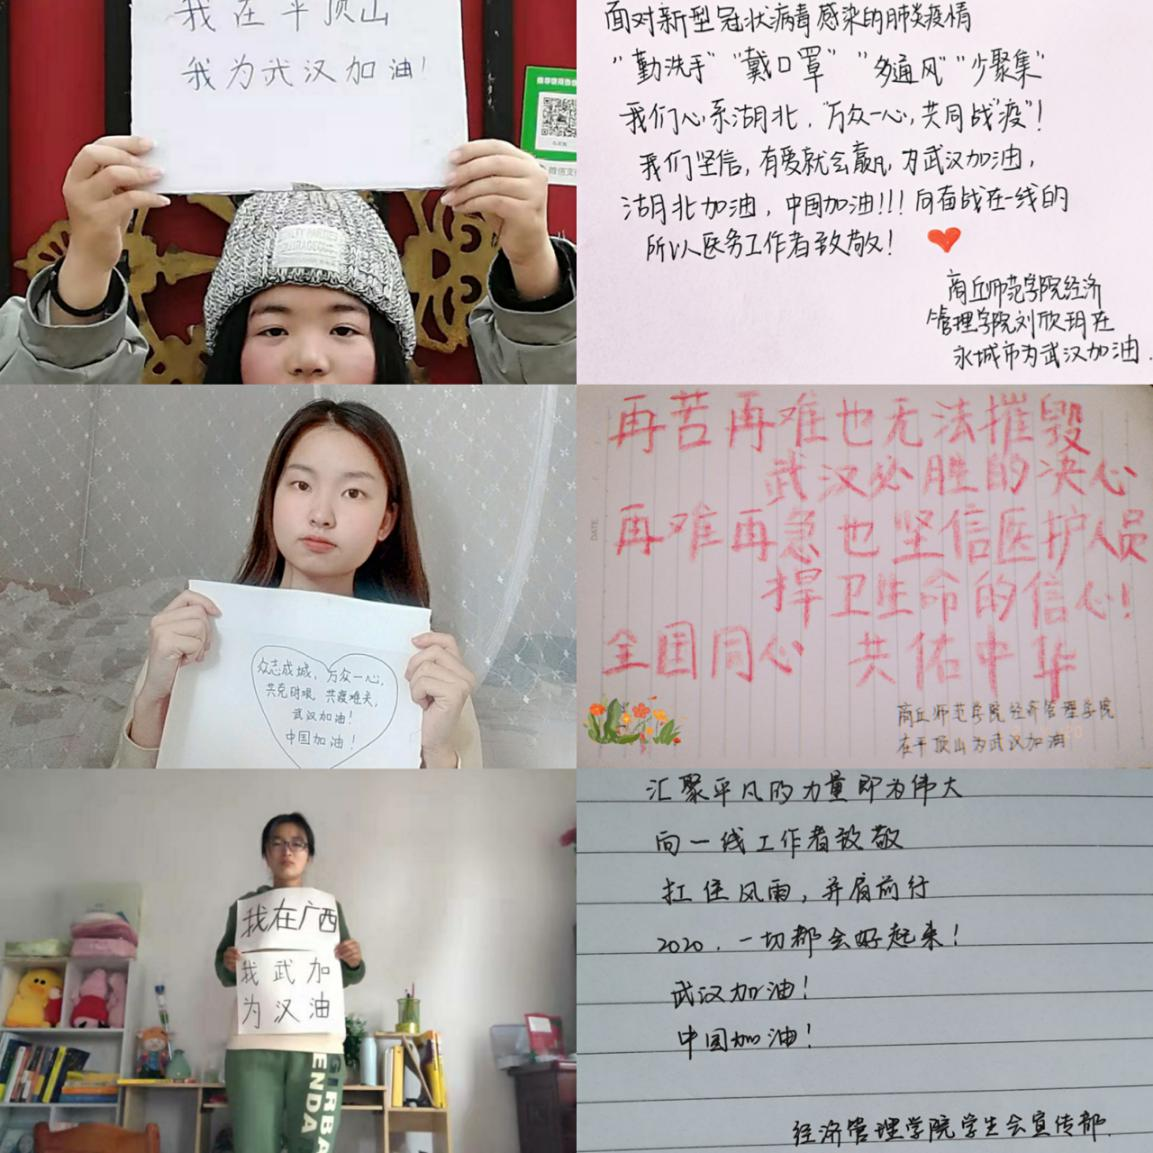 我在平顶山
我为武汉加油!
面对新型冠状病毒感染的肺炎疫情
“勤洗手”“戴口罩”“多通风”“少聚集”
我们心系湖北,“万众一心,共同战“疫”!
我们坚信,有爱就会赢,为武汉加油,
湖北加油,中国加油!!!向奋战在一线的
所以医务工作者致敬!
商丘师范学院经济
管理学院刘欣玥在
永城市为武汉加油.
众志成城,万众一心,
共克时艰,共度难关,
武汉加油!
中国加油!
再苦再难也无法摧毁
武汉必胜的决心
再难再急也坚信医护人员
捍卫生命的信心!
全国同心 共佑中华
DATE
商丘师范学院经济管理学院
在平顶山为武汉加油
我在广西
我武加
为汉油
GIRBA
ENDA
汇聚平凡的力量即为伟大
向一线工作者致敬
扛住风雨,并肩前行
2020,一切都会好起来!
武汉加油!
中国加油!
经济管理学院学生会宣传部.